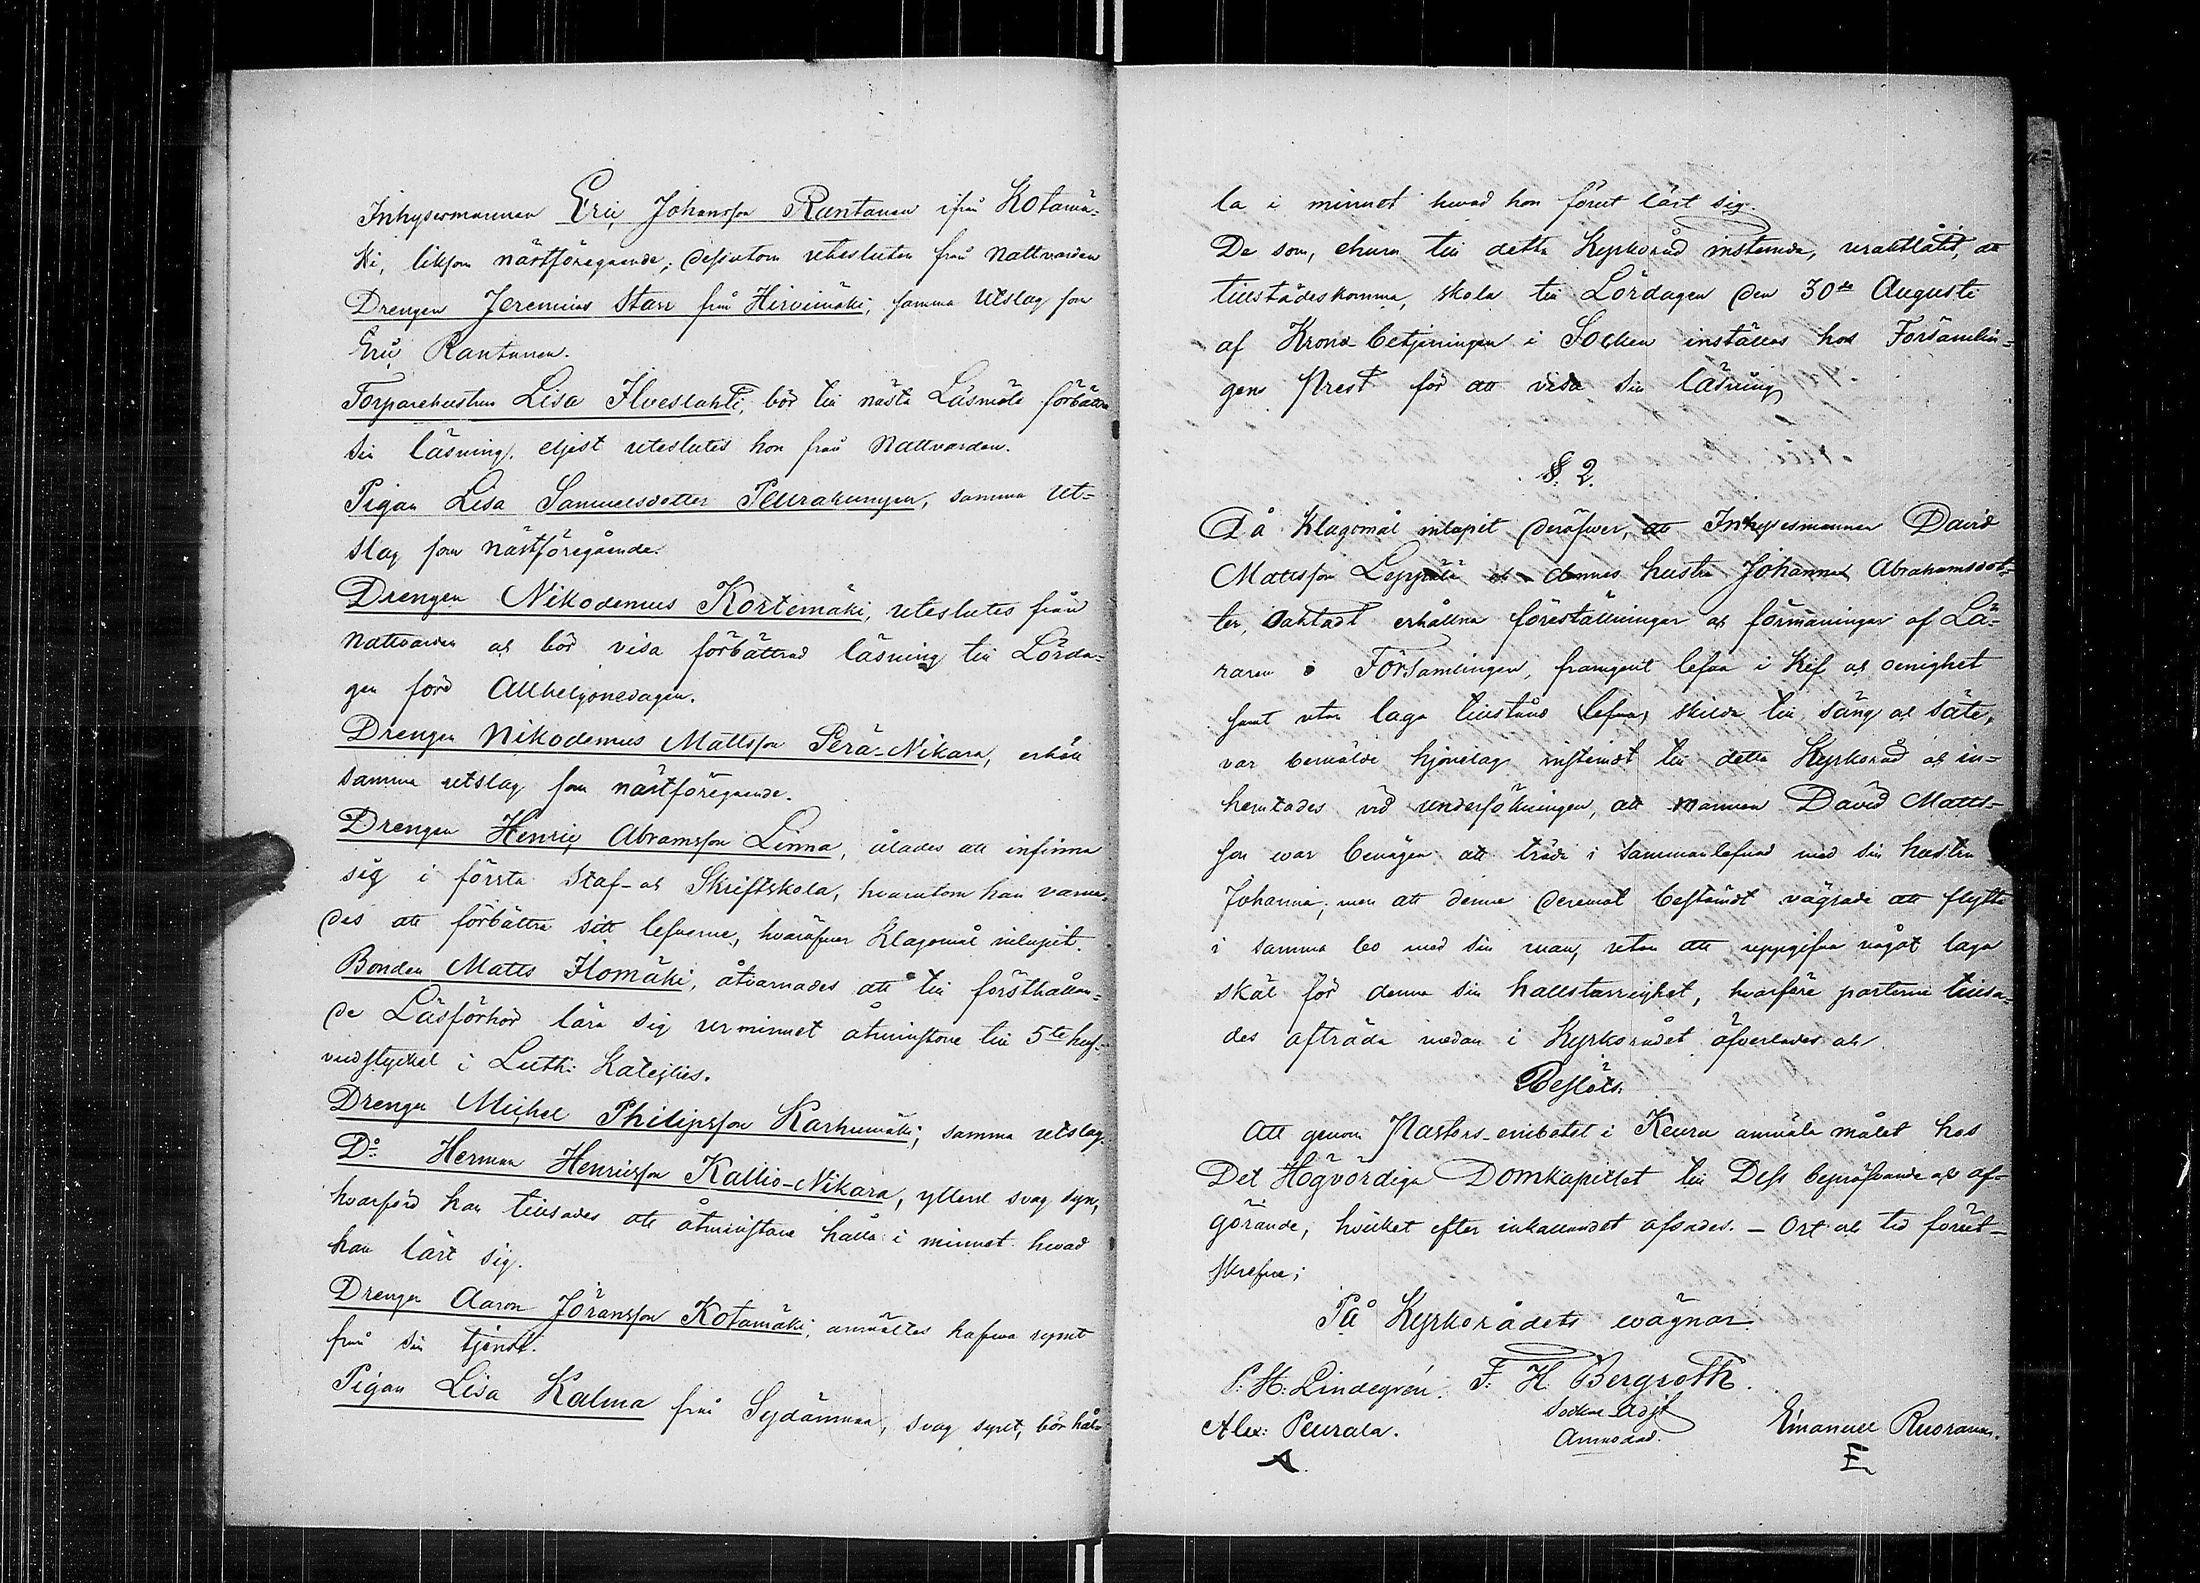 Inhysesmannen Eric Johansson Rantanen ifrån Kotamä-
ki, likson nästföregaende; dessutom utesluten från Nattvarden
Drengen Jeremias Starr från Hirvimäki, samma Utslag som
Eric Rantanen.
Torparehustrun Lisa Ilveslahti, bör till nästa Läsmöte förbättra
sin läsning, eljest uteslutes hon från Nattvarden.
Pigan Lisa Samuelsdotter Peurakumpu, samma Ut-
slag som nästföregående.
Drengen Nikodemus Kortemäki, uteslutes från
Nattvarden och bör visa förbättrad läsning till Lörda-
gen före Allhelgonedagen.
Drengen Nikodemus Mattsson Perä-Nikara, erhöll
samma utslag som nästföregaende.
Drengen Henric Abramsson Linna, ålades att infinna
sig i första Staf- och Skriftskola, hvarutom han varna-
des att förbättra sitt lefverne, hvaröfver Klagomål inlupit.
Bonden Matts Ilomäki, åtvarnades att till försthållan-
de Läsförhör lära sig ur minnet åtminstone till 5te huf-
vudstycket i Luth: Kateches.
Drengen Michel Philipsson Karhumäki, samma utslag.
Do Herman Henricsson Kallio-Nikara, ytterst svag syn,
hvarföre han tillsades att åtminstone hålla i minnet hvad
han lärt sig.
Drengen Aaron Jöransson Kotamäki, anmältes hafva rymt
från sin tjenst.
Pigan Lisa Kalma från Sydänmaa, svag synt, bör hål-
la i minnet hvad hon förut lärt sig.
De som, ehuru till detta Kyrkoråd instemda, uraktlåtit, att
tillstädeskomma, skola till Lördagen den 30de Augusti
af Krono betjeningen i Socken inställas hos Församlin-
gens Prest för att visa sin läsning
§. 2.
Då Klagomål inlupit deröfver, att Inhysesmannen David
Mattsson Leppälä och dennes hustru Johanna Abrahamsdot-
ter, oaktadt erhållna föreställningar och förmaningar af Lä-
raren i Församlingen, framgent lefva i Kif och oenighet
samt utan laga tillstånd lefva skilda till säng och säte,
var bemälde hjonelag instemdt till detta Kyrkoråd och in-
hemtades vid undersökningen, att mannen David Matts-
son war benägen att träda i sammanlefnad med sin hustru
Johanna; men att denna deremot bestämdt vägrade att flytta
i samma bo med sin man, utan att uppgifva något laga
skäl för denna sin hallstarrighet, hvarföre parterne tillsa-
des afträda medan i Kyrkorådet öfverlades och
Beslöts:
Att genom Pastors-embetet i Keuru anmäla målet hos
Det Högvördiga Domkapitlet till Dess bepröfvande och af-
görande, hvilket efter inkallandet afsades. - Ort och tid förut-
skrefne;
På Kyrkorådets wägnar.
P: H: Lindegrén. F: H. Bergroth.
Sockne Adjt
Ammodad.
Alex: Peurala. Emanuel Ruoranen.
A. E